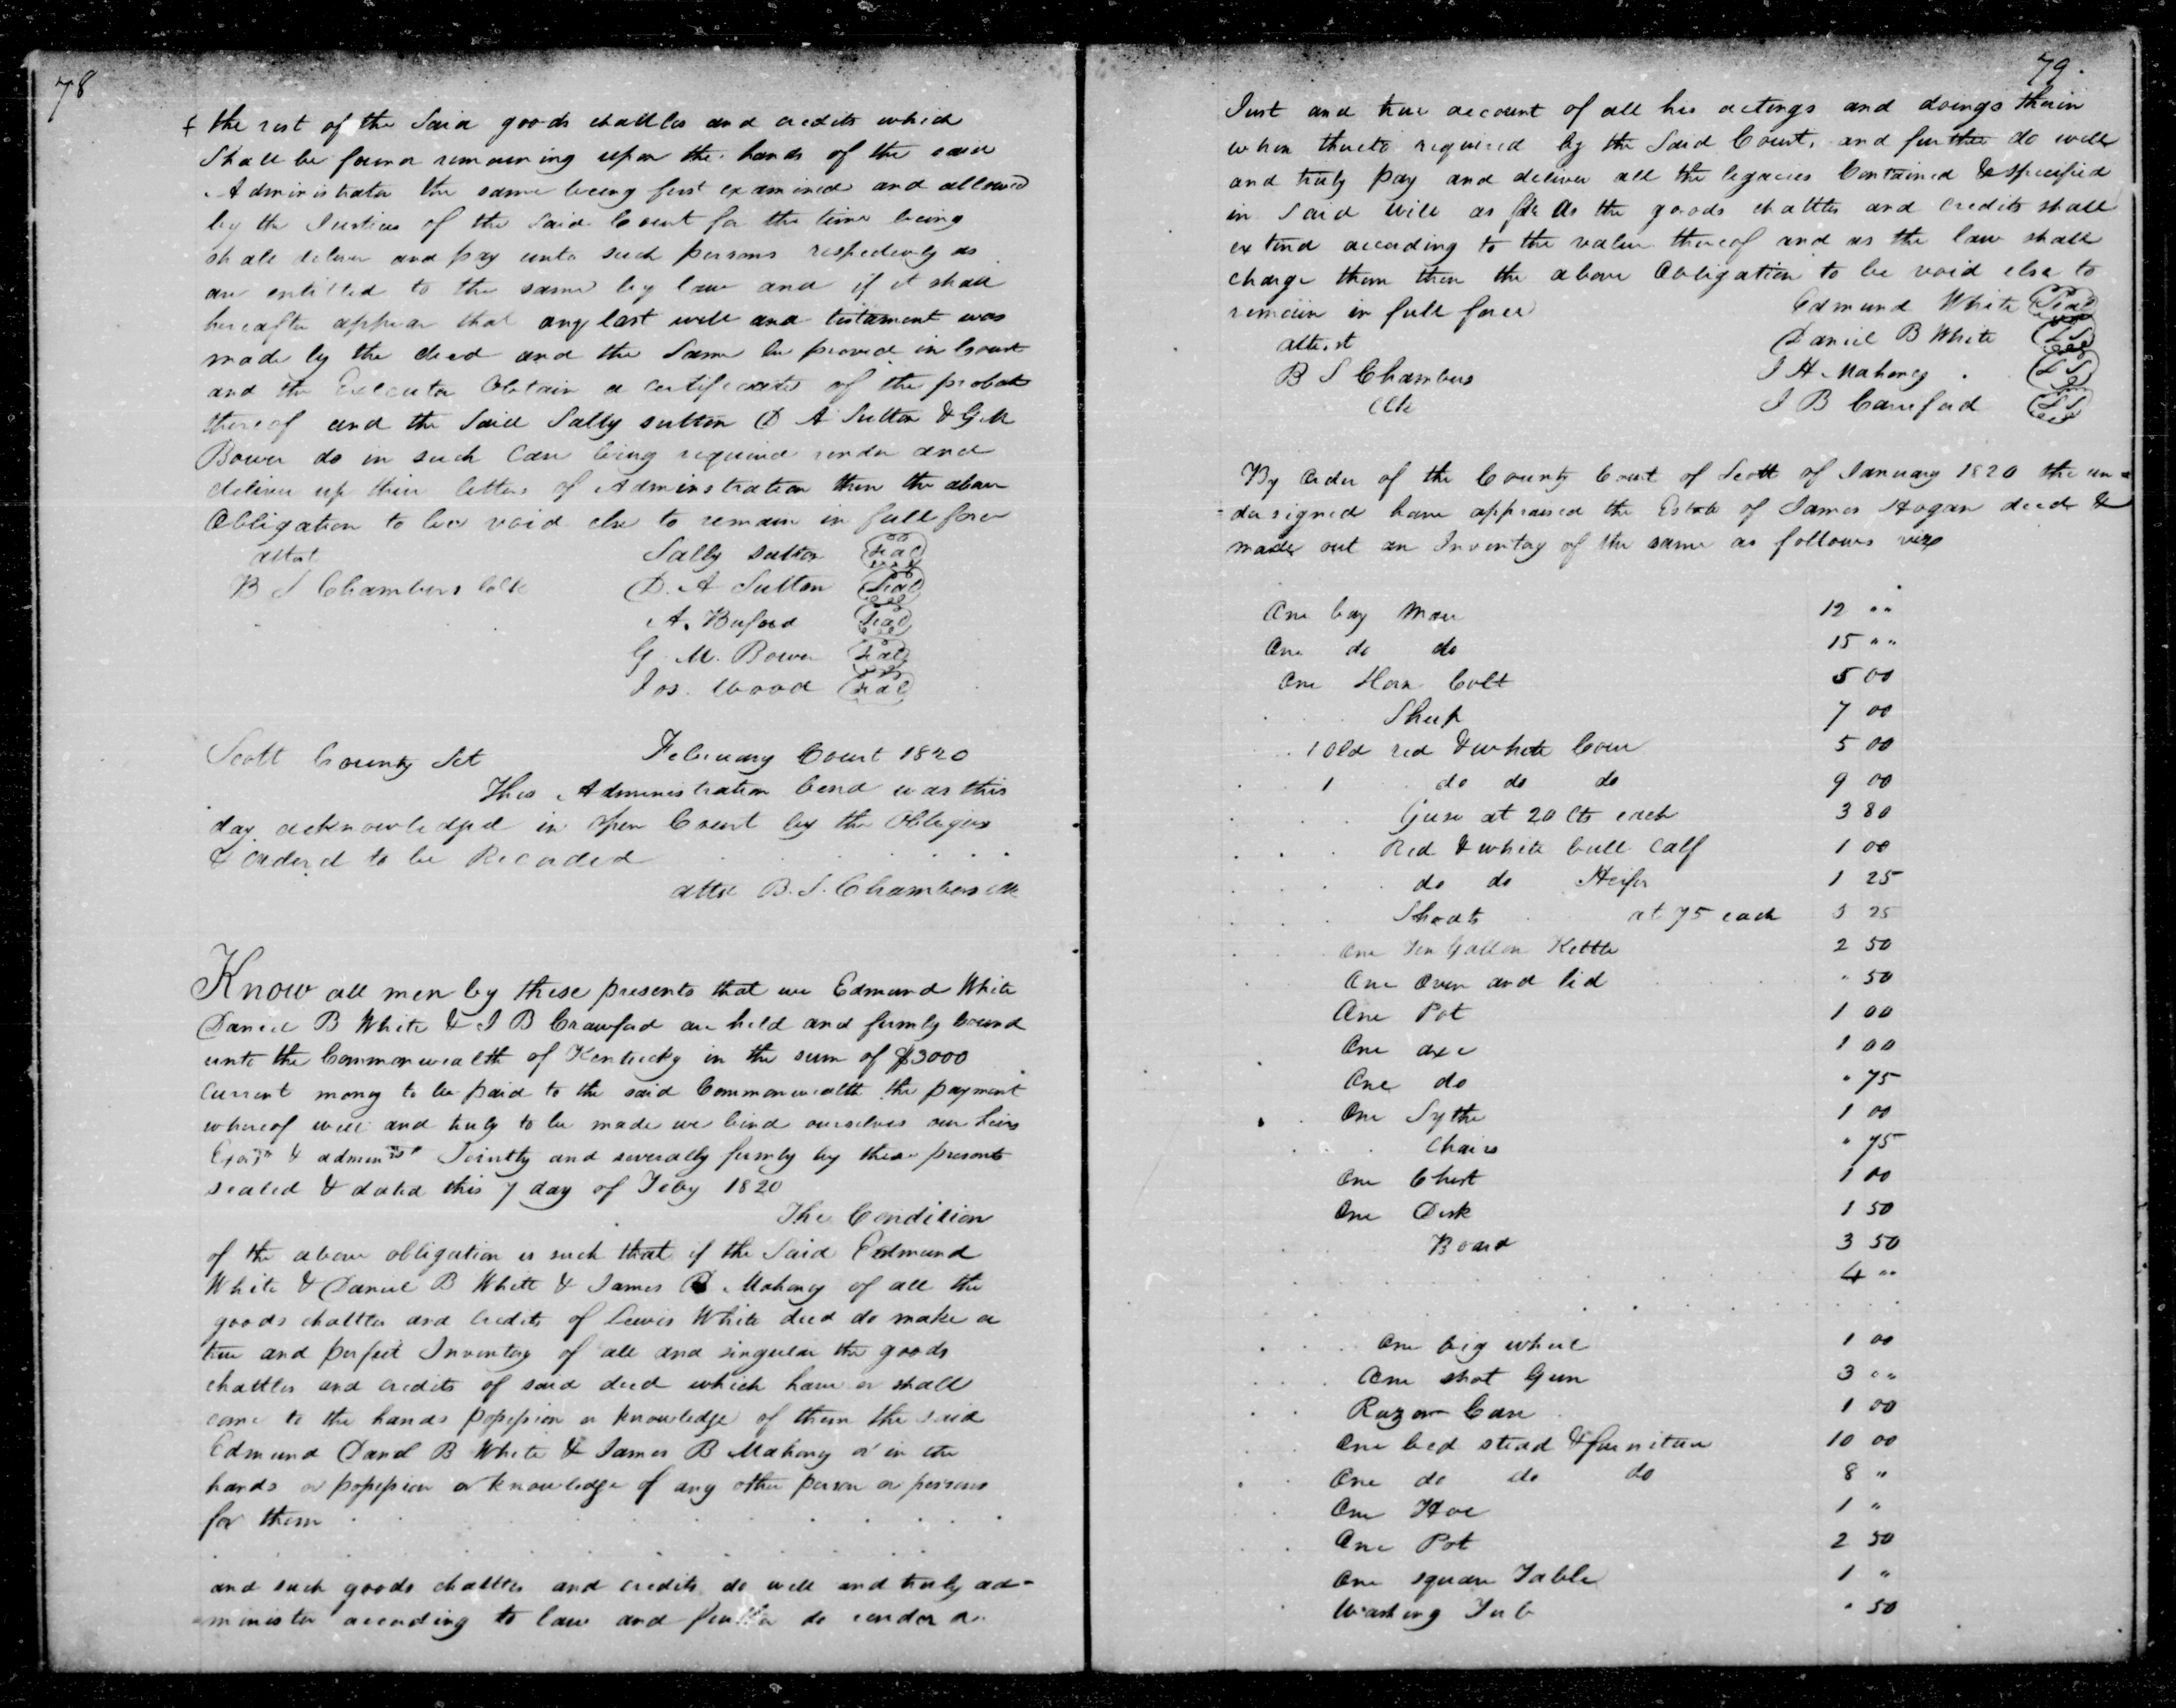 78
& the rest of the Said goods chattles and credits which
Shall be found remaining upon the hands of the said
Administrator the same being first examined and allowed
by the Justices of the Said Court for the time being
shall deliver and pay unto such persons respectively as
are entitled to the same by law and if it shall
hereafter appear that any last will and testament was
made by the decd and the Same be proved in Court
and the Executor Obtain a certificate of the probate
thereof and the Said Sally Sutton D A Sutton & G. M
Bower do in such Case being required render and
deliver up their letters of Adminstration then the above
Obligation to be void else to remain in full force
attest
B S Chambers Clk
Sally Sutton Seal
D. A Sutton Seal
A. Buford Seal
G. M. Bower Seal
Jos. Wood Seal
Scott County Sct February Court 1820
This Administration bond was this
day acknowledged in Open Court by the Obligors
& Ordered to be Recorded
attd B. S. Chambers Clk
Know all men by these presents that we Edmund White
Daniel B White & J B Crawford are held and firmly bound
unto the Commonwealth of Kentucky in the sum of $3000
Current money to be paid to the said Commonwealth the payment
whereof well and truly to be made we bind ourselves our heirs
Exors & admenrs Jointly and severally firmly by these presents
sealed & dated this 7 day of Feby 1820
The Condition
of the above obligation is such that if the Said Edmund
White & Daniel B White & James B Mahony of all the
goods chattles and credits of Lewis White decd do make a
true and perfect Inventory of all and singular the goods
chattles and credits of said decd which have or shall
come to the hands possession or knowledge of them the said
Edmund Danl B White & James B Mahony or in the
hands or possession or knowledge of any other person or persons
for them
and such goods chattles and credits do well and truly ad-
minister according to law and further do render a
79.
Just and true account of all his actings and doings therin
when thereto required by the Said Court, and further do well
and truly pay and deliver all the legacies Contained & specified
in Said will as far As the goods chattles and credits shall
extend according to the value thereof and as the law shall
charge them then the above Obligation to be void else to
remain in full force
Edmund White Seal
attest Daniel B White L S
B S Chambers J H Mahoney L S
Clk J B Crawford L S
By Order of the County Court of Scott of January 1820 the un-
dersigned have appraised the Estate of James Hogan decd &
made out an Inventory of the same as follows viz
One bay Mare 12 ""
One do do 15 ""
One Horse Colt 5 00
Sheep 7 00
1 Old red & white Cow 5 00
1 do do do 9 00
Geese at 20 Cts each 3 80
Red & white bull calf 1 00
do do Heifer 1 25
Shoats at 75 each 5 25
One Ten Gallon Kettle 2 50
One Oven and lid " 50
One Pot 1 00
One axe 1 00
One do " 75
One Sythe 1 00
Chairs " 75
One Chest 1 00
One Desk 1 50
Board 3 50
4 ""
One big wheel 1 00
One shot Gun 3 ""
Razor Case 1 00
One bed stead & furniture 10 00
One do do do 8 "
One Hoe 1 "
One Pot 2 50
One square Table 1 "
Washing Tub " 50